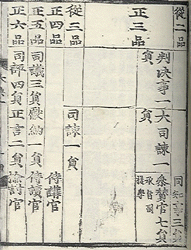 從二品
正三品 判決事一員 大司諫一員 參贊官七員
從三品 司諫一員
正四品 侍講官
正五品 司議三員 獻納一員 侍讀官
正六品 司評四員 正言二員 檢討官